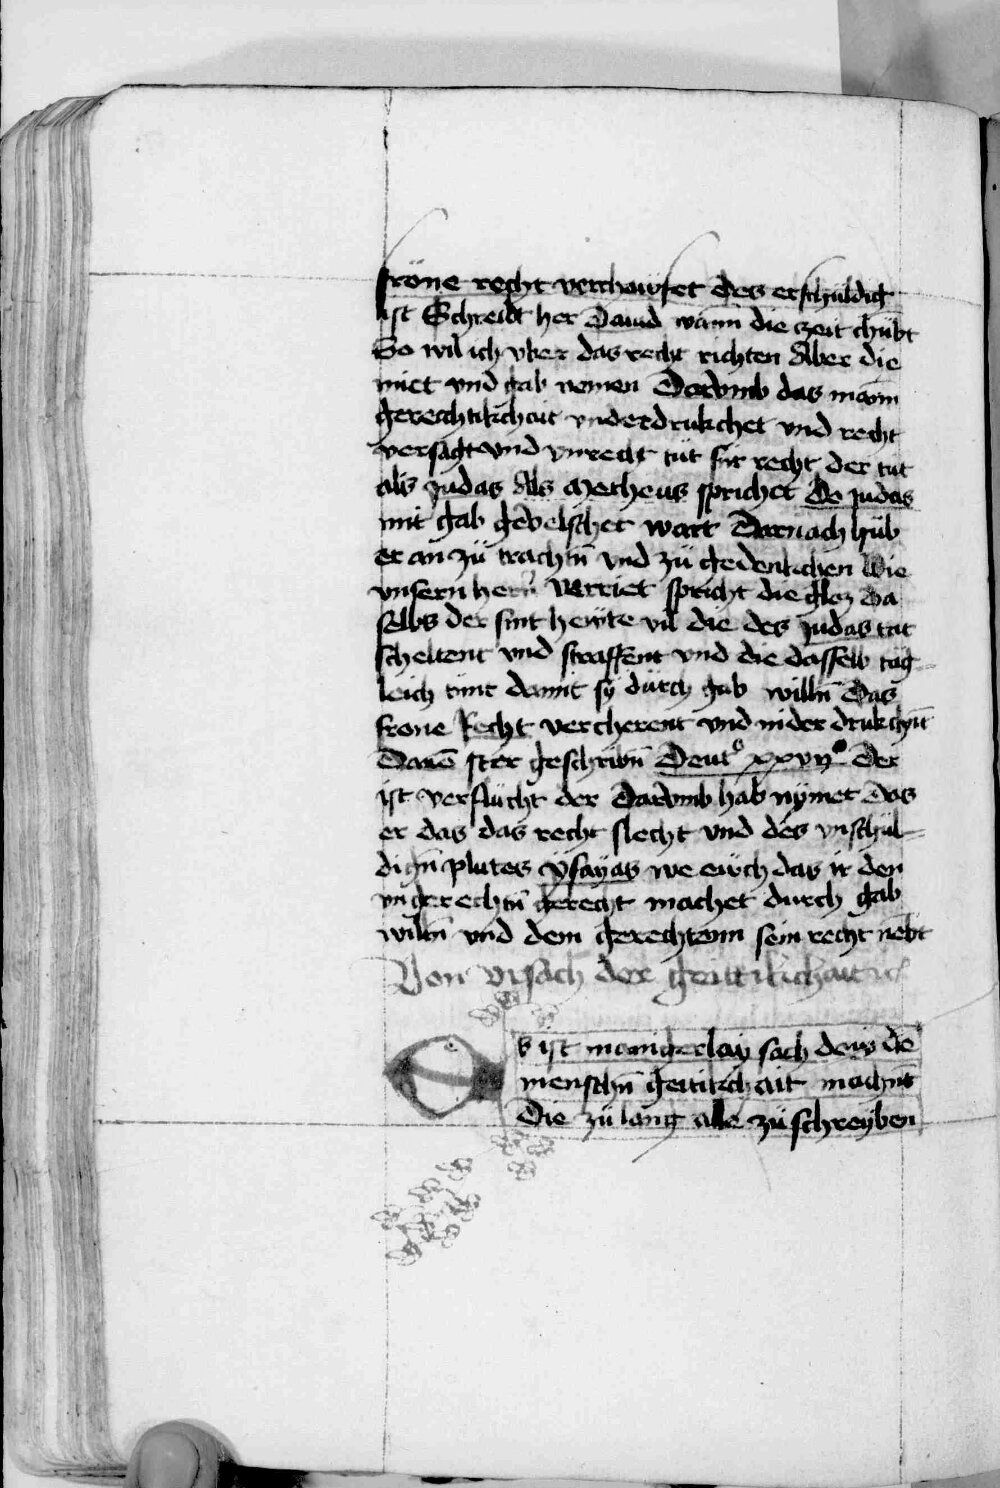 fröne recht verchawffet des erschuldig
ist Schreibt her Dauid wann die zeit chübt
So wil ich vber das recht richten Aber die
miet vnd gab nemen Dorvmb das mann
gerechtikchait vnderdrukchet vnd recht
versagt vnd vnrecht tüt für recht der tüt
als Judas Als Matheus sprichet Do Judas
mit gab gevelschet wart Darnach hüb
er an zü trachtn̄ vnd zü gedenkchen Wie
vnsern hern̄ verriet spricht die gloz da
selbs der sint hewte vil die des Judas tat
scheltent vnd straffent vnd die dasselb täg
leich tünt damit sy durch gab willn̄ Das
frone Recht vercherent vnd nider drukchn̄t
Dauō stet geschribn̄ Deutᵒ xxvijᵒ Der
ist verflücht der darvmb hab nymet das
er das das recht slecht vnd des vnschul=
dign̄ plutes ysayas we ewch das ir den
vngerechtn̄ gerecht machet durch gab
willn̄ vnd dem gerechtenn sein recht nebt
Von vrsach der geitikichait
Es ist manigerlay sach dew die
menschn̄ geitikchait machnt
Die zü lang alle zü schreyben